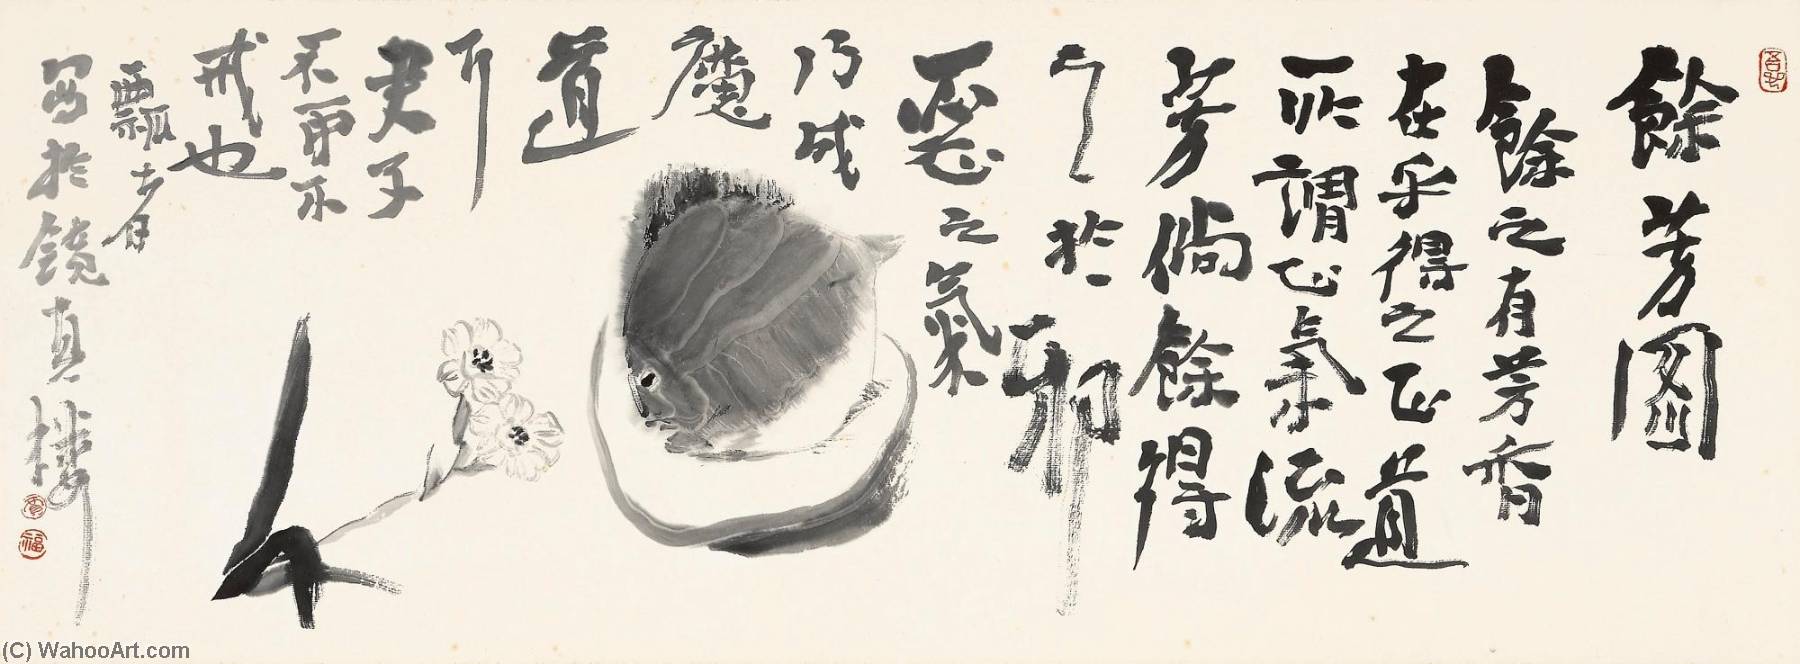 餘芳圖
餘之有芳香
在乎得之正道
所謂正氣流
芳倘餘得
之於邪
惡之氣
乃成
魔
道
君子
不可不
戒也
瓢
寫於鏡真樓
福
(C) WahooArt.com